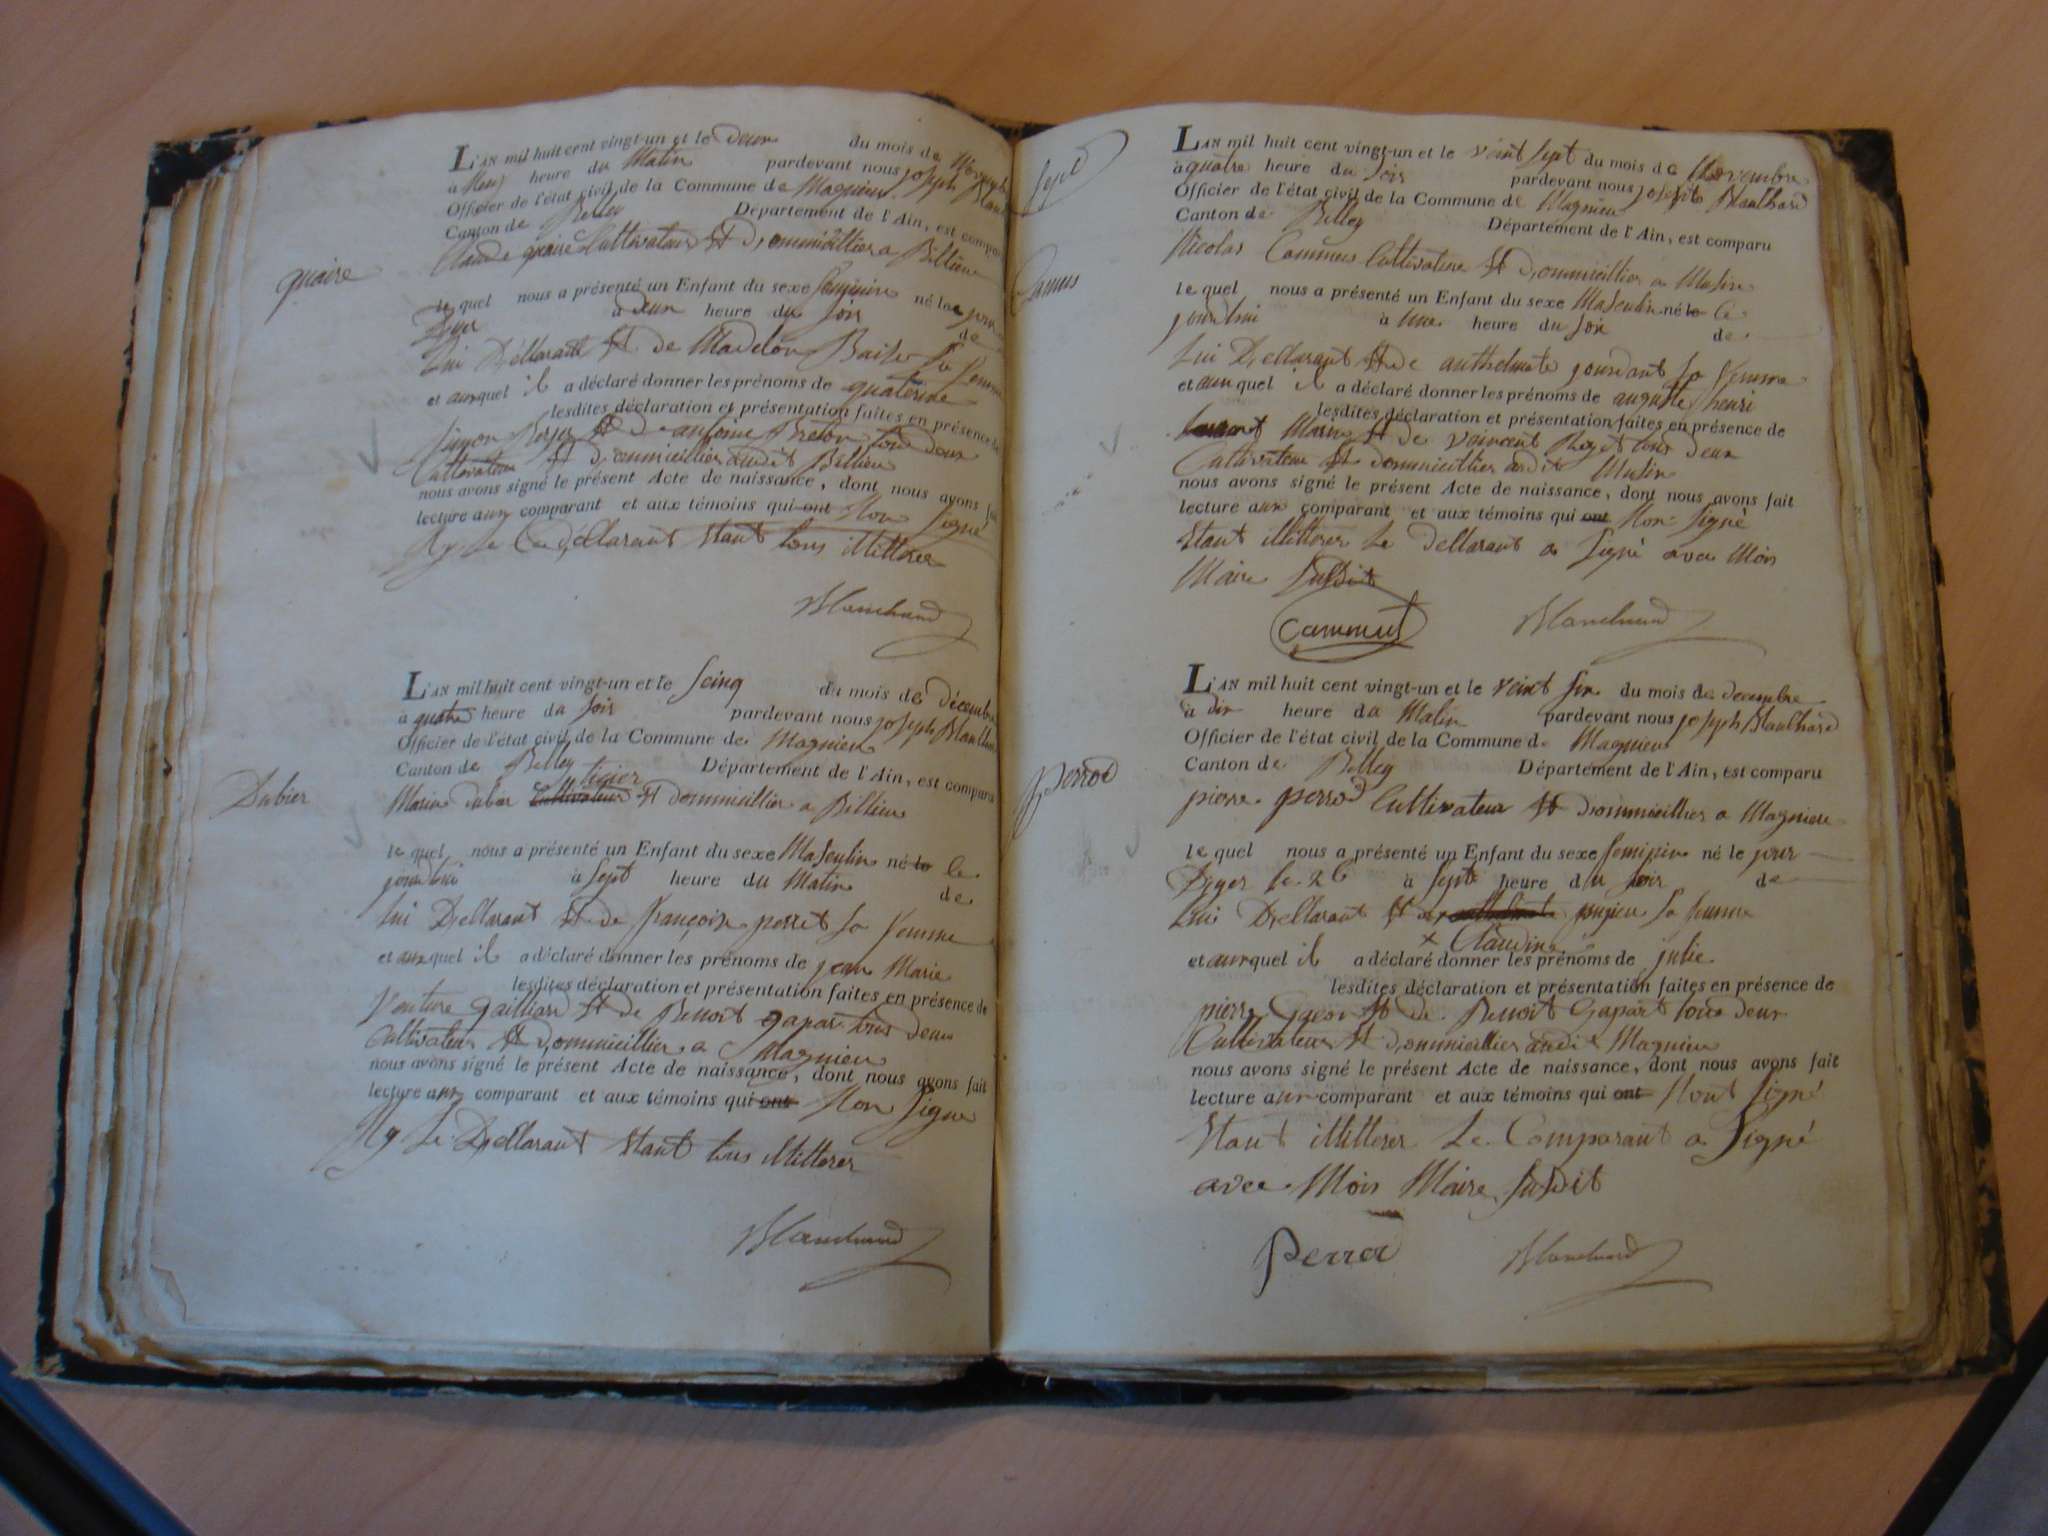 L'AN mil huit cent vingt-un et le deux du mois de Novembre
à Neuf heure du Matin pardevant nous joseph
Officier de l'état civil de la Commune de Magnieu
Canton de Belley Département de l'Ain, est comparu
quaire
Claude quaire Cultivateur et Dommicillier a Billieu
le quel nous a présenté un Enfant du sexe feminin né la jour
Dyer à deux heure du soir de
Lui Déllarant et de Madelon sa femme
et auxquel il a déclaré donner les prénoms de quaterine
lesdites déclaration et présentation faites en présence de
et de antoine Breton tous deux
Cultivateur et dommicillier audit Billieu
nous avons signé le présent Acte de naissance, dont nous avons fait
lecture aux comparant et aux témoins qui ont Non Signé
Ny Le déllarant Etant tous illitterer
Blanchard
L'AN mil huit cent vingt-un et le seinq du mois de décembre
à quatre heure du soir pardevant nous joseph Blanchard
Officier de l'état civil de la Commune de Magnieu
Canton de Belley Département de l'Ain, est comparu
tigier
Dubier
Marin dubier Cultivateur et dommicillier a Billieu
le quel nous a présenté un Enfant du sexe Masculin né le ce
jourdhui à sept heure du Matin de
Lui Dellarant et de françoise perret sa femme
et auxquel il a déclaré donner les prénoms de jean Marie
lesdites déclaration et présentation faites en présence de
Venture gailliard et de Benoit gapar tous deux
Cultivateur et dommicillier a Magnieu
nous avons signé le présent Acte de naissance, dont nous avons fait
lecture aux comparant et aux témoins qui ont Non Signe
Ny Le Dellarant Etant tous illitterer
Blanchard
sept
L'AN mil huit cent vingt-un et le veint sept du mois de Novembre
à quatre heure du soir pardevant nous joseph Blanchard
Officier de l'état civil de la Commune de Magnieu
Canton de Belley Département de l'Ain, est comparu
Camus
Nicolas Cammus Cultivateur et Dommicillier a Musin
le quel nous a présenté un Enfant du sexe Masculin né le Ce
jourdhui à Une heure du soir de
Lui Dellarant et de anthelmate jourdant sa femme
et aux quel il a déclaré donner les prénoms de auguste henri
lesdites déclaration et présentation faites en présence de
Marin et de vaincent Roget tous deux
Cultivateur et dommicillier audit Musin
nous avons signé le présent Acte de naissance, dont nous avons fait
lecture aux comparant et aux témoins qui ont Non Signé
Etant illitterer Le dellarant a Signé avec Mois
Maire Susdit
Cammus Blanchard
L'AN mil huit cent vingt-un et le veint six du mois de decembre
à dix heure du Matin pardevant nous joseph Blanchard
Officier de l'état civil de la Commune de Magnieu
Canton de Belley Département de l'Ain, est comparu
perrod
piere perrod Cultivateur et Dommicillier a Magnieu
le quel nous a présenté un Enfant du sexe feminin né le jour
Dyer le 26 à sept heure du soir de
Lui Dellarant et de pugieu sa femme
x Claudine
et auxquel il a déclaré donner les prénoms de julie
lesdites déclaration et présentation faites en présence de
pierre et de Benoit Gapart tous deux
Cultivateur et dommicillier audit Magnieu
nous avons signé le présent Acte de naissance, dont nous avons fait
lecture aux comparant et aux témoins qui ont Nont Signé
Etant illitterer Le Comparant a Signé
avec Mois Maire Susdit
Perrod Blanchard